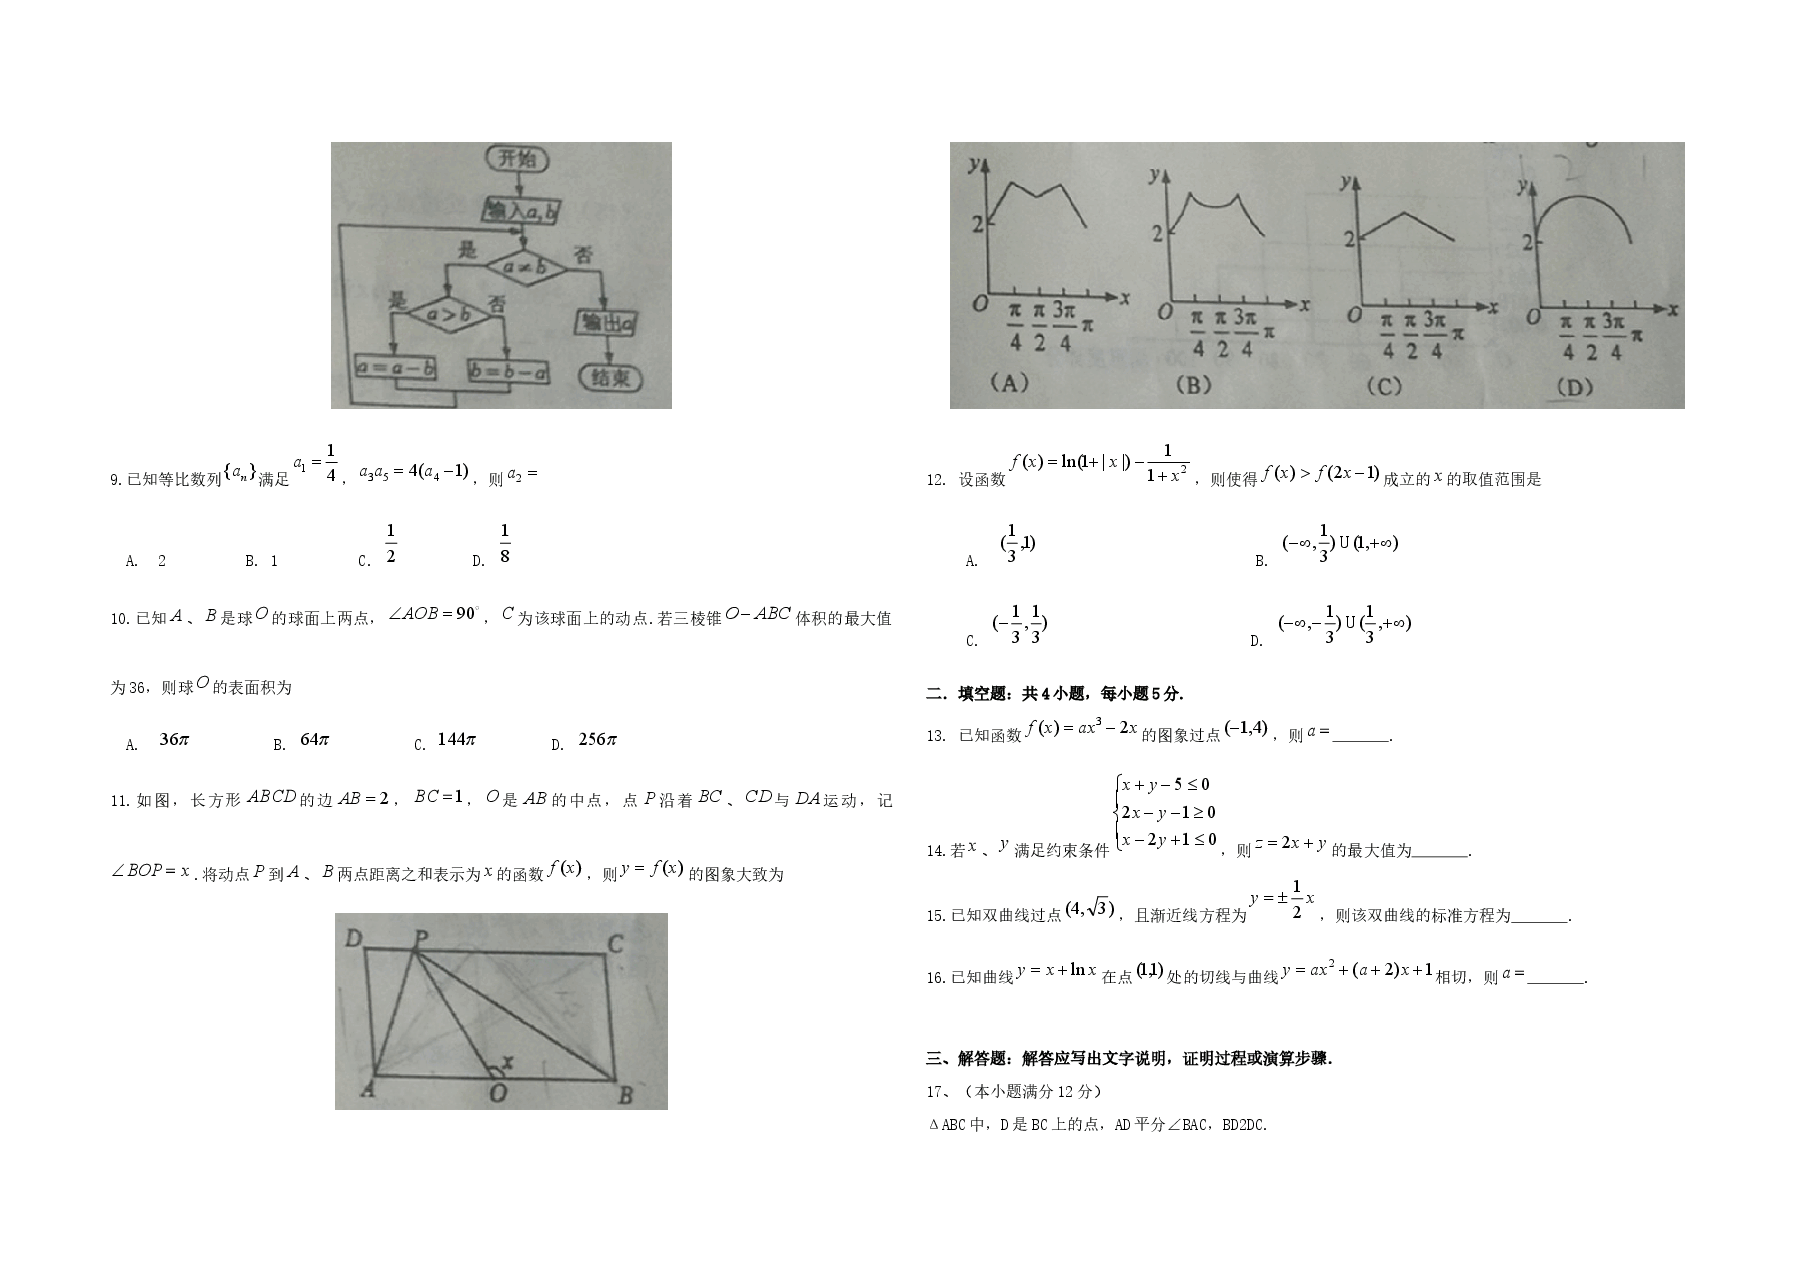 开始
输入a,b
是
否
a≠b
是
否
a>b
输出a
a=a-b
b=b-a
结束
9.已知等比数列{aₙ}满足a₁=1/4，a₃a₅=4(a₄-1)，则a₂=
A. 2 B. 1 C. 1/2 D. 1/8
10.已知A、B是球O的球面上两点，∠AOB=90°，C为该球面上的动点.若三棱锥O-ABC体积的最大值
为36，则球O的表面积为
A. 36π B. 64π C. 144π D. 256π
11.如图，长方形ABCD的边AB=2，BC=1，O是AB的中点，点P沿着BC、CD与DA运动，记
∠BOP=x.将动点P到A、B两点距离之和表示为x的函数f(x)，则y=f(x)的图象大致为
D P C
x
A O B
y y y y
2 2 2 2
O π/4 π/2 3π/4 π x O π/4 π/2 3π/4 π x O π/4 π/2 3π/4 π x O π/4 π/2 3π/4 π x
(A) (B) (C) (D)
12. 设函数f(x)=ln(1+|x|)-1/(1+x²)，则使得f(x)>f(2x-1)成立的x的取值范围是
A. (1/3,1) B. (-∞,1/3)U(1,+∞)
C. (-1/3,1/3) D. (-∞,-1/3)U(1/3,+∞)
二．填空题：共4小题，每小题5分．
13. 已知函数f(x)=ax³-2x的图象过点(-1,4)，则a=_______.
x+y-5≤0
2x-y-1≥0
x-2y+1≤0
14.若x、y满足约束条件，则z=2x+y的最大值为_______.
15.已知双曲线过点(4,√3)，且渐近线方程为y=±1/2x，则该双曲线的标准方程为_______.
16.已知曲线y=x+lnx在点(1,1)处的切线与曲线y=ax²+(a+2)x+1相切，则a=_______.
三、解答题：解答应写出文字说明，证明过程或演算步骤．
17、（本小题满分12分）
ΔABC中，D是BC上的点，AD平分∠BAC，BD2DC.